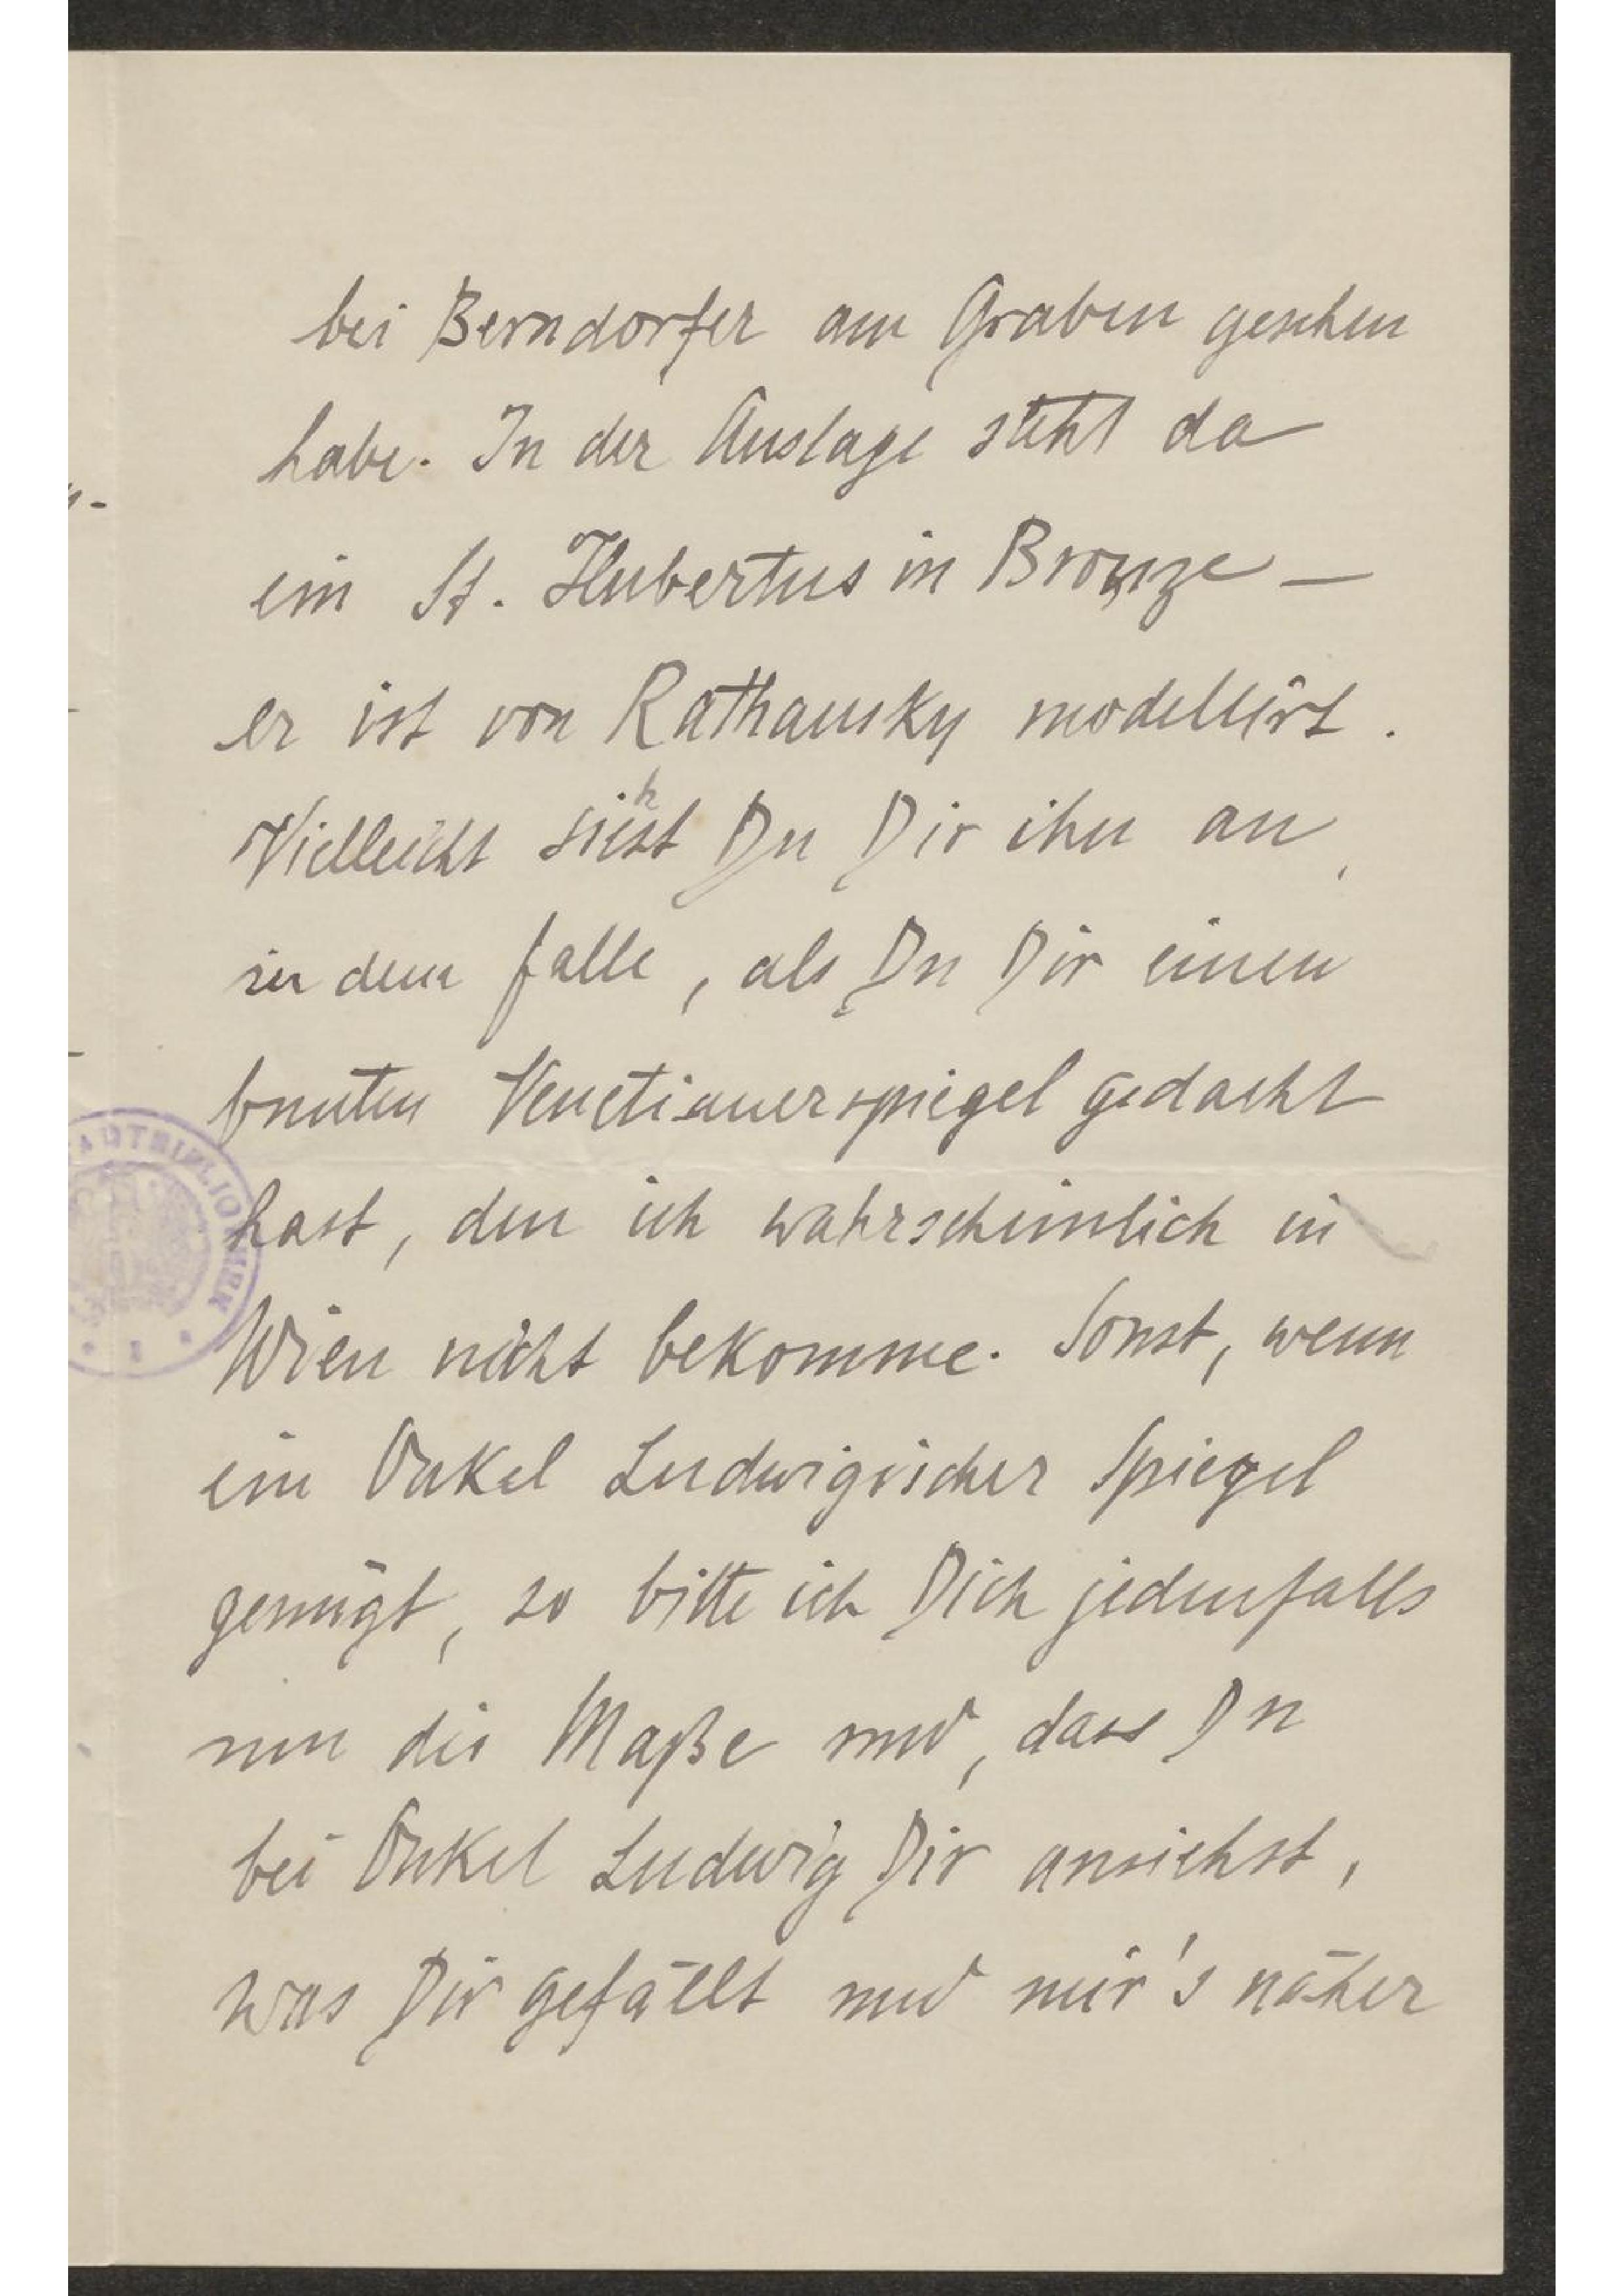 bei Berndorfer am Graben gesehen
habe. In der Auslage steht da
ein St. Hubertus in Bronze —
er ist von Rathausky modellirt.
Vielleicht siehst Du Dir ihn an,
in dem Falle, als Du Dir einen
bunten Venetianerspiegel gedacht
hast, den ich wahrscheinlich in
Wien nicht bekomme. Sonst, wenn
ein Onkel Ludwigischer Spiegel
genügt, so bitte ich Dich jedenfalls
um die Maße und, dass Du
bei Onkel Ludwig Dir ansiehst,
was Dir gefällt und mir's näher